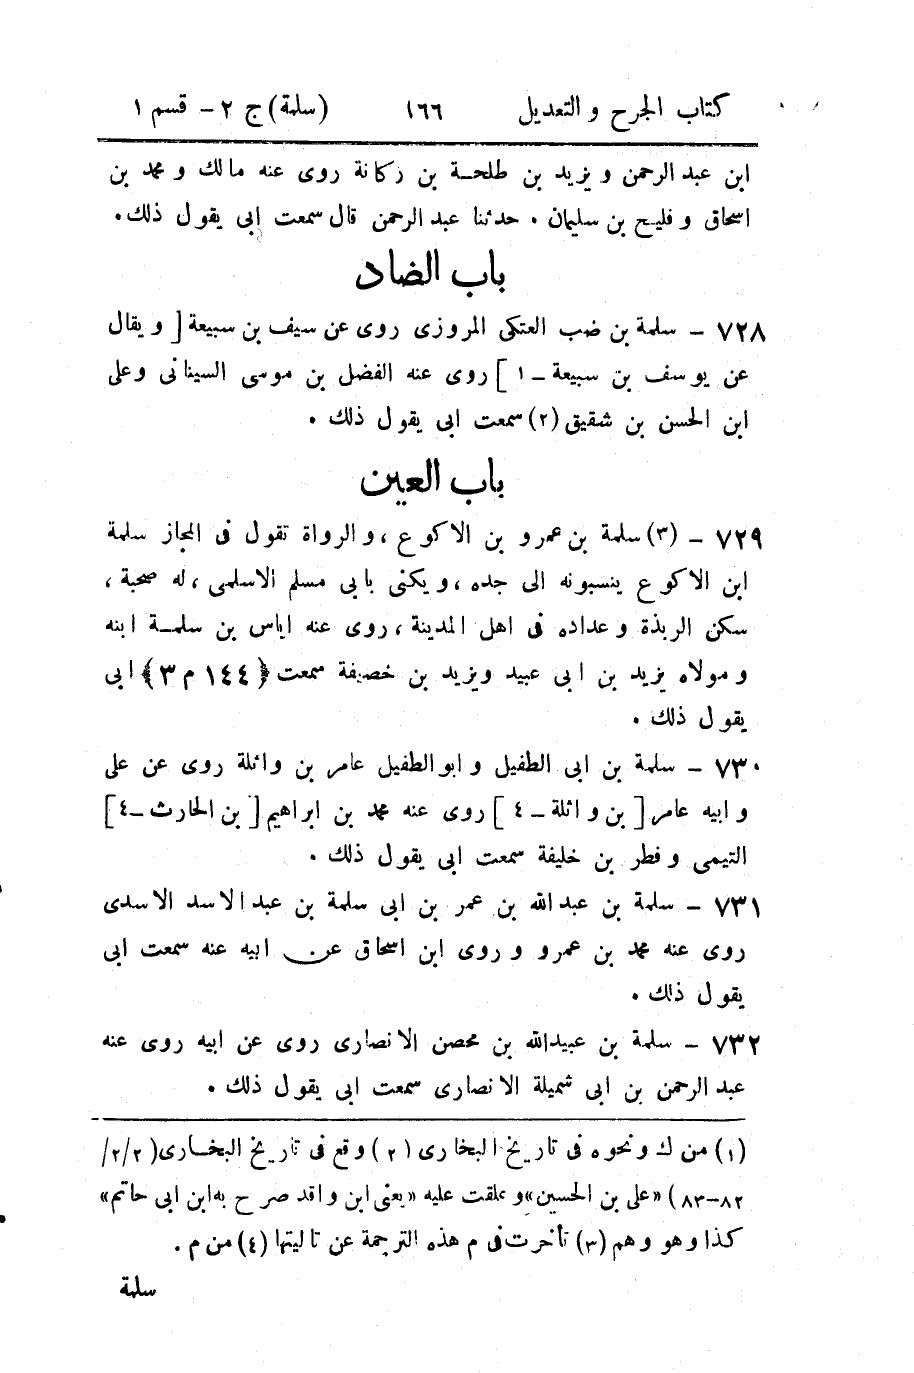 كتاب الجرح و التعديل ١٦٦ (سلمة) ج ٢ – قسم ١
ابن عبد الرحمن و يزيد بن طلحة بن ركانة روى عنه مالك و محمد بن
اسحاق و فليح بن سليمان . حدثنا عبد الرحمن قال سمعت ابى يقول ذلك .
باب الضاد
٧٢٨ – سلمة بن ضب العتكى المروزى روى عن سيف بن سبيعة [ و يقال
عن يوسف بن سبيعة – ١ ] روى عنه الفضل بن موسى السينانى وعلى
ابن الحسن بن شقيق (٢) سمعت ابى يقول ذلك .
باب العين
٧٢٩ – (٣) سلمة بن عمرو بن الاكوع ، و الرواة تقول فى المجاز سلمة
ابن الاكوع ينسبونه الى جده ، و يكنى بابى مسلم الاسلمى ، له صحبة ،
سكن الربذة و عداده فى اهل المدينة ، روى عنه اياس بن سلمة ابنه
و مولاه يزيد بن ابى عبيد ويزيد بن خصيفة سمعت ﴿ ١٤٤ م ٣ ﴾ ابى
يقول ذلك .
٧٣٠ – سلمة بن ابى الطفيل و ابو الطفيل عامر بن واثلة روى عن على
و ابيه عامر [ بن واثلة – ٤ ] روى عنه محمد بن ابراهيم [ بن الحارث – ٤ ]
التيمى و فطر بن خليفة سمعت ابى يقول ذلك .
٧٣١ – سلمة بن عبد الله بن عمر بن ابى سلمة بن عبد الاسد الاسدى
روى عنه محمد بن عمرو و روى ابن اسحاق عن ابيه عنه سمعت ابى
يقول ذلك .
٧٣٢ – سلمة بن عبيد الله بن محصن الانصارى روى عن ابيه روى عنه
عبد الرحمن بن ابى شميلة الانصارى سمعت ابى يقول ذلك .
(١) من ك ونحوه فى تاريخ البخارى (٢) وقع فى تاريخ البخارى (٢/٢/
٨٢–٨٣) «على بن الحسين» و علقت عليه «يعنى ابن واقد صرح به ابن ابى حاتم»
كذا وهو وهم (٣) تأخرت فى م هذه الترجمة عن تاليتها (٤) من م .
سلمة